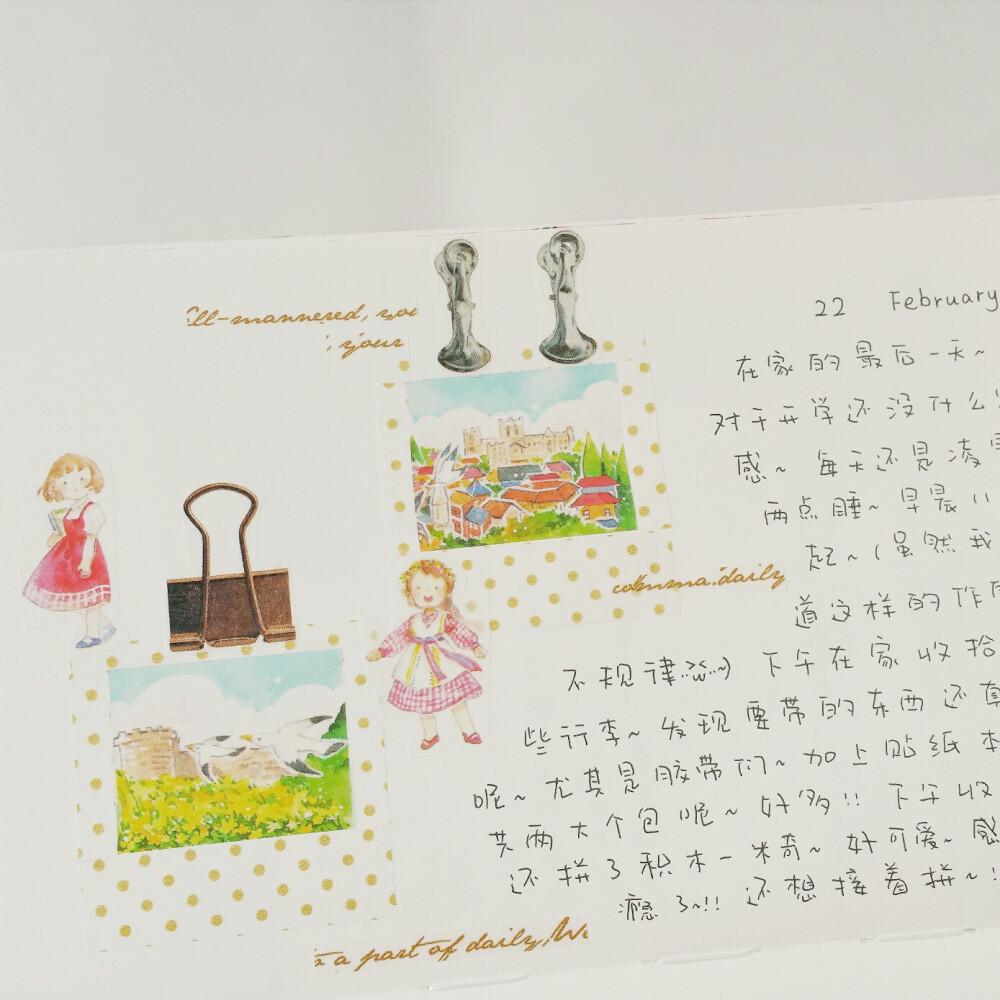 ell-mannered, you
your
22 February
在家的最后一天~
对于开学还没什么
感~ 每天还是凌
两点睡~ 早晨11
起~(虽然我
道这样的作
不规律 :·w·~) 下午在家收拾
些行李~ 发现要带的东西还真
呢~ 尤其是胶带们~ 加上贴纸本
共两大个包呢~ 好多!! 下午收
还拼了积木—米奇~ 好可爱~ 感
瘾了~!! 还想接着拼~!
comma.daily
a part of daily, We